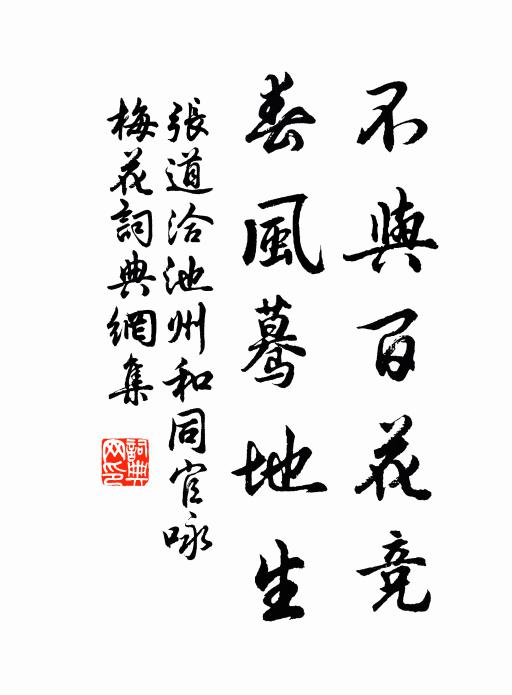 不與百花競
春風驀地生
張道洽池州和同官咏
梅花詞典網集
詞典
网印